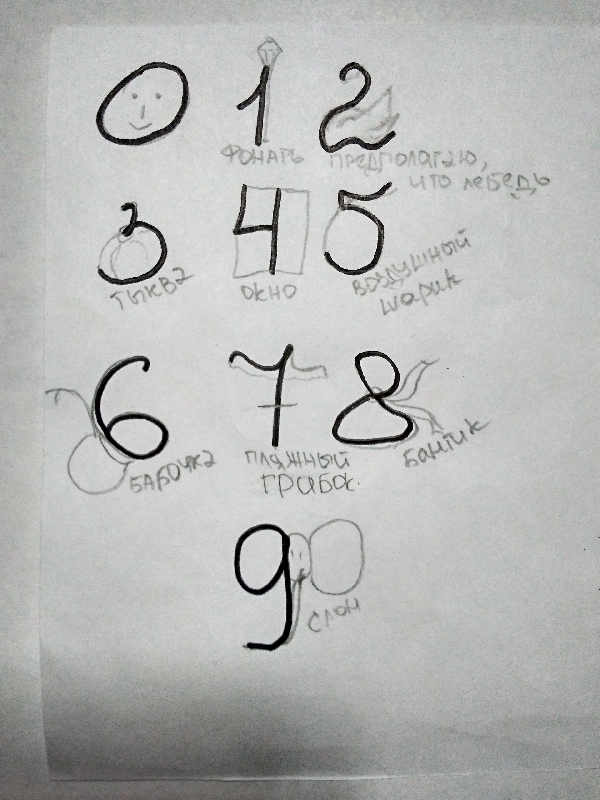 0 1 2
ФОНАРЬ
ПРЕДПОЛАГАЮ,
ЧТО лебедь
3 4 5
ТЫКВА
ОКНО
ВОЗДУШНЫЙ
шарик
6 7 8
БАБОЧКА
ПЛЯЖНЫЙ
ГРИБОК.
БАНТИК
9
СЛОН